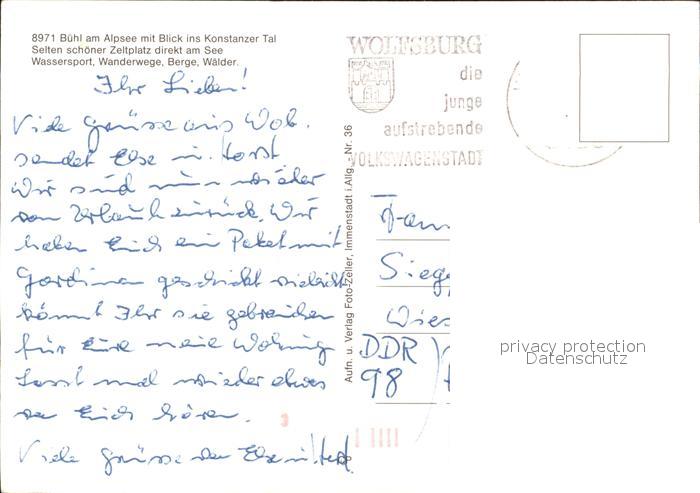 8971 Bühl am Alpsee mit Blick ins Konstanzer Tal
Selten schöner Zeltplatz direkt am See
Wassersport, Wanderwege, Berge, Wälder.
Ihr Lieben!
Viele Grüsse aus Wob.
sendet Else u. Horst
Wir sind nun wieder
von Urlaub zurück. Wir
haben Euch ein Paket mit
Gardinen geschickt vieleicht
könnt Ihr sie gebrauchen
für Eure neue Wohnung
Lasst mal wieder etwas
von Euch hören.
Viele Grüsse von Else u. Horst
Aufn. u. Verlag Foto-Zeller, Immenstadt i. Allg. - Nr. 36
WOLFSBURG
die
junge
aufstrebende
VOLKSWAGENSTADT
Fam
Sieg
Wies
DDR
98
privacy protection
Datenschutz